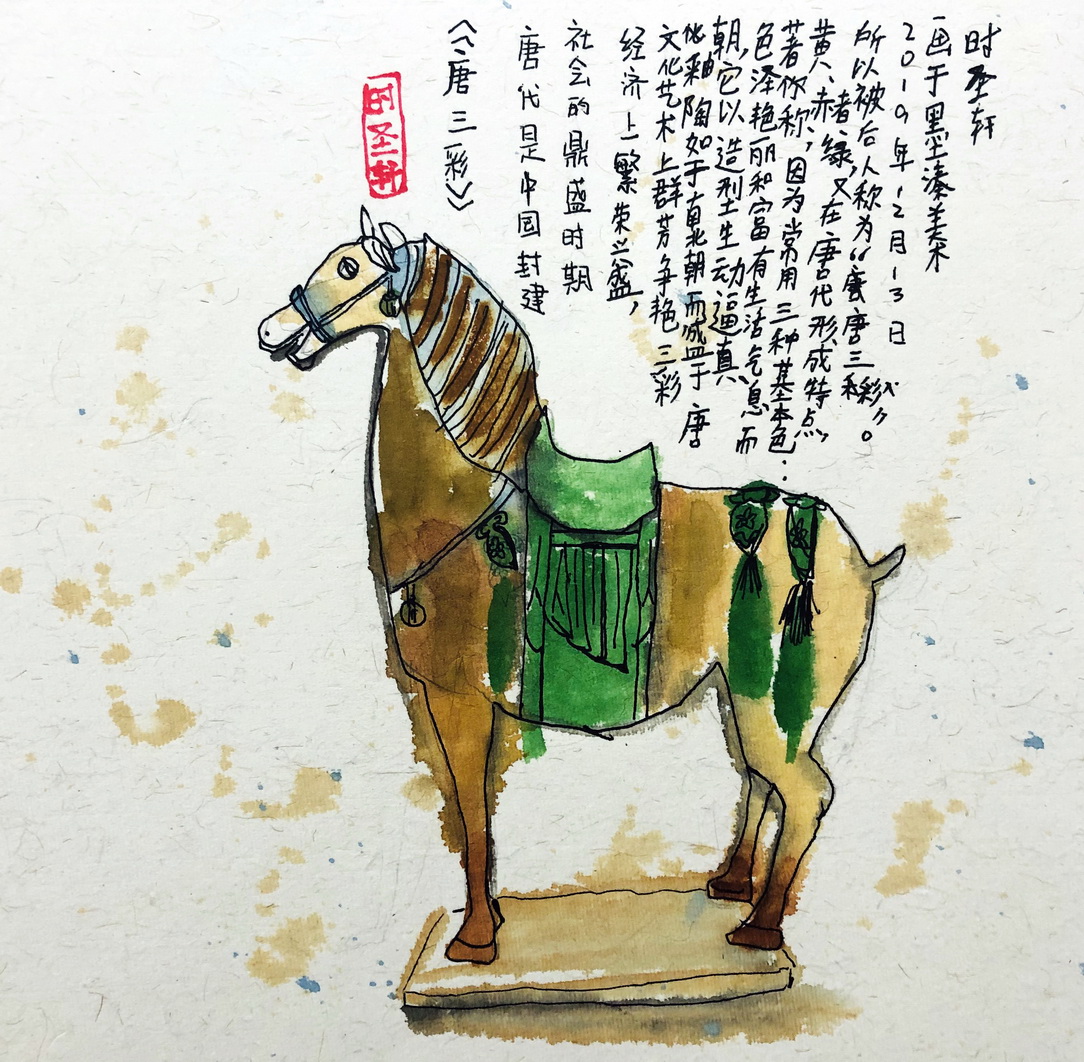 时圣轩
《唐三彩》
唐代是中国封建
社会的鼎盛时期
经济上繁荣兴盛,
文化艺术上群芳争艳三彩
化釉陶如于南北朝而盛于唐
朝,它以造型生动逼真
色泽艳丽和富有生活气息而
著你称,因为常用三种基本色:
黄、赭、绿,又在唐代形成特点,
所以被后人称为“唐三彩”。
2019年12月13日
画于墨尘溱美术
时圣轩